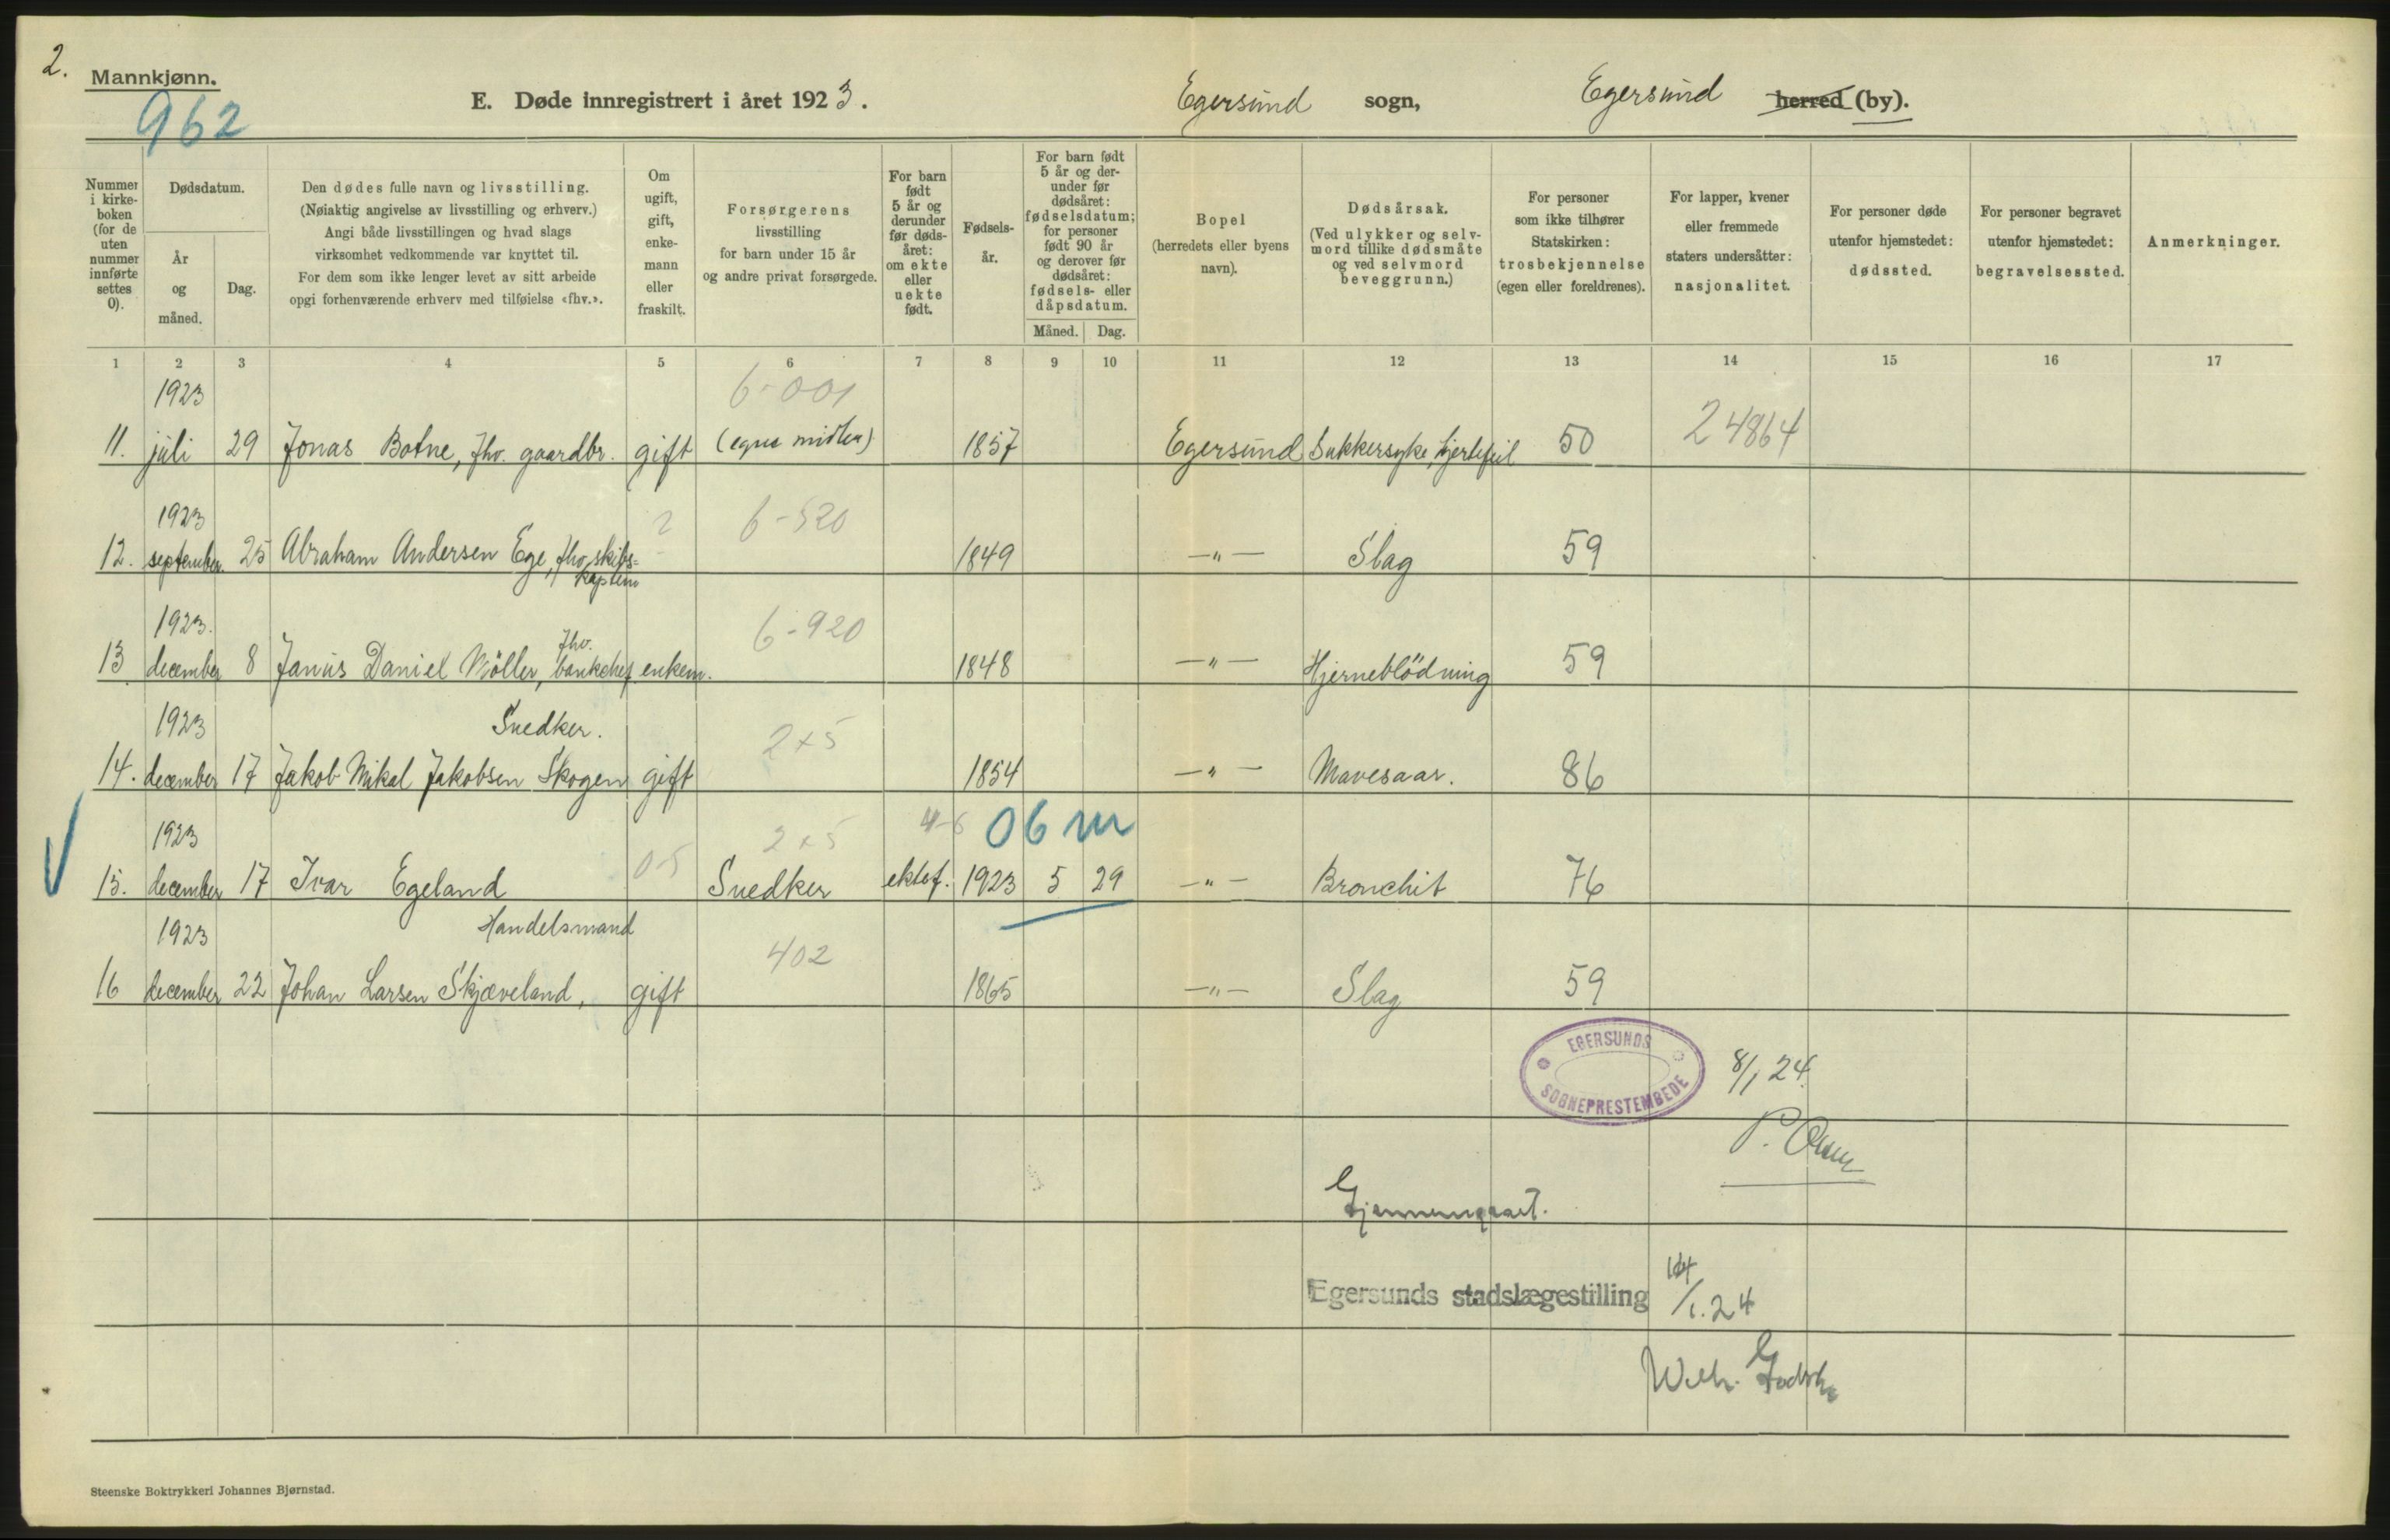 2.
Mannkjønn.
962
E. Døde innregistrert i året 1923.
Egersund sogn, Egersund herred (by).
Nummer i kirkeboken (for de uten nummer innførte settes 0).
Dødsdatum.
År og måned.
Dag.
Den dødes fulle navn og livsstilling.
(Nøiaktig angivelse av livsstilling og erhverv.)
Angi både livsstillingen og hvad slags
virksomhet vedkommende var knyttet til.
For dem som ikke lenger levet av sitt arbeide
opgi forhenværende erhverv med tilføielse «fhv.».
Om ugift, gift, enkemann eller fraskilt.
Forsørgerens
livsstilling
for barn under 15 år
og andre privat forsørgede.
For barn født 5 år og derunder før dødsåret: om ekte eller uekte født.
Fødselsår.
For barn født 5 år og derunder før dødsåret: fødselsdatum; for personer født 90 år og derover før dødsåret: fødsels- eller dåpsdatum.
Måned. Dag.
Bopel
(herredets eller byens
navn).
Dødsårsak.
(Ved ulykker og selvmord tillike dødsmåte og ved selvmord beveggrunn.)
For personer
som ikke tilhører
Statskirken:
trosbekjennelse
(egen eller foreldrenes).
For lapper, kvener
eller fremmede
staters undersåtter:
nasjonalitet.
For personer døde
utenfor hjemstedet:
dødssted.
For personer begravet
utenfor hjemstedet:
begravelsessted.
Anmerkninger.
1 2 3 4 5 6 7 8 9 10 11 12 13 14 15 16 17
1923 6-001
11. juli 29 Jonas Botne, fhv. gaardbr. gift (egne midler) 1857 Egersund Sukkersyke, hjertefeil 50 24864
1923 ? 6-520
12. september 25 Abraham Andersen Ege, fhv. skibs= 1849 -"- Slag 59
kaptein
1923. fhv. 6-920
13 december 8 Janus Daniel Möller, bankchef enkem. 1848 -"- Hjerneblödning 59
1923 Snedker. 2x5
14. december 17 Jakob Mikal Jakobsen Skogen gift 1854 -"- Mavesaar. 86
1923 0-5 2x5 4-6 06 m
15. december 17 Ivar Egeland Snedker ektef. 1923 5 29 -"- Bronchit 76
1923 Handelsmand 402
16 december 22 Johan Larsen Skjæveland, gift 1865 -"- Slag 59
EGERSUNDS SOGNEPRESTEMBEDE
8/1 24.
Gjennemgaaet.
Egersunds stadslægestilling 14/1.24
Steenske Boktrykkeri Johannes Bjørnstad.